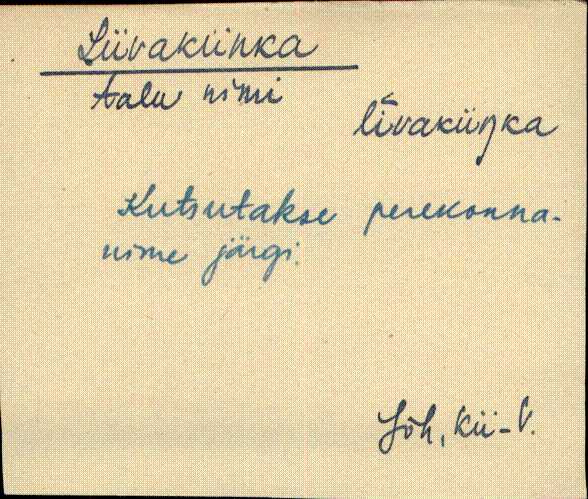 Liivakünka
talu nimi
līvaküŋka
Kutsutakse perekonna-
nime järgi.
Jõh, Kü-V.